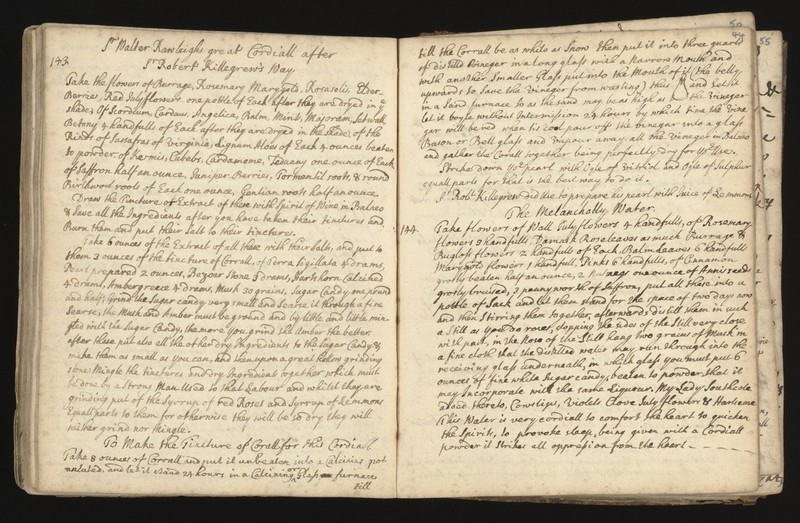 Sr Walter Rawleighs great Cordiall after
Sr Robert Killegrew's Way.
143
Take the flowers of Burrage, Rosemary Marygold, Rosasolis, Elder-
Berries, Red Julyflowers one pottle of Each after they are dryed in ye
shade; Of Scordium, Carduus, Angelica, Balm, Mint, Majoram, Setwall
Betony 4 handfulls of Each after they are dryed in the shade; of the
Rinde of Sassafras of Virginia, Lignum Aloes of Each 4 ounces beaten
to powder. of Kermis, Cubebs, Cardamome, Zeduary one ounce of Each
of Saffron half an ounce, Juniper Berries, Tormentil roots, & round
Birthwort roots of Each one ounce, Gentian roots half an ounce.
Draw the Tincture or Extract of these with Spirit of Wine in Balneo
& Save all the Ingredients after you have taken their tinctures and
Burn them and put their Salt to their tinctures.
Take 6 ounces of the Extract of all these with their Salts, and put to
them 3 ounces of the tincture of Corall, of Terra Sigillata 4 drams,
Pearl prepared 2 ounces, Bezoar Stone 3 drams, Harts horn Calcined
4 drams, Ambergreece 4 drams, Musk 30 grains, Sugar Candy one pound
and half; Grind the Sugar candy very small and Searce it through a fine
Searse, the Musk and Amber must be ground and by little and little min-
gled with the Sugar Candy, the more you grind the Amber the better.
after these put also all the other dry Ingredients to the Sugar Candy &
make them as small as you can, and then upon a great hollow grinding
stone Mingle the tinctures and dry Ingredients together which must
be done by a strong Man Used to that Labour and whilst they are
grinding put of the Syrrup of red Roses and Syrrup of Lemmons
Equall parts to them for otherwise they will be so dry they will
neither grind nor Mingle.
To Make the Tincture of Corall for this Cordiall
Take 8 ounces of Corrall and put it unbeaten into a Calcining pot
unluted, and let it stand 24 hours in a Calcining or Glass furnace
till
50
44
till the Corrall be as white as Snow then put it into three quarts
of distilled Vineger in a long glass with a Narrow Mouth and
with another Smaller Glass put into the Mouth of it (the belly
upwards to Save the Vineger from wasting) thus and Set it
in a Sand furnace so as the sand may be as high as the Vineger
let it boyle without Intermission 24 hours by which time the Vine
gar will be red when tis cool pour off the Vinegar into a glass
Bason or Bell glass and Vapour away all the Vineger in Balneo
and gather the Corall together being perfectly dry for yor Use.
Strike down yor pearl with Oyle of Vitriol and Oyle of Sulphur
equall parts for that is the best way to do it.
Sr Robt Killegrew did Use to prepare his pearl with Juice of Lemmons
The Melancholly Water.
144
Take flowers of Wall July flowers 4 handfulls, of Rosemary
flowers 3 handfulls, Damask Rose leaves as much Burrage &
Bugloss flowers 2 handfulls of Each, Balm leaves 6 handfull
Marygold flowers 1 handfull, Pinks 6 handfulls, of Cinnamon
grossly beaten half an ounce, 2 Nutmegs one ounce of Annis seeds
grossly bruised, 3 pennyworth of Saffron, put all these into a
pottle of Sack and let them stand for the space of two days now
and then stirring them together, afterwards distill them in such
a Still as you do roses, stopping the sides of the Still very close
with past, in the Nose of the Still hang two grains of Musk in
a fine cloth that the distilled water may run through into the
receiving glass underneath, in which glass you must put 6
ounces of fine white Sugar candy, beaten to powder that it
may incorporate with the same Liqueur. My Lady Southcole
added thereto, Cowslips, Violets Clove July flowers & Hartsease
This Water is very cordiall to comfort the heart to quicken
the Spirits, to provoke sleep, being given with a Cordiall
powder it strikes all oppression from the heart
55